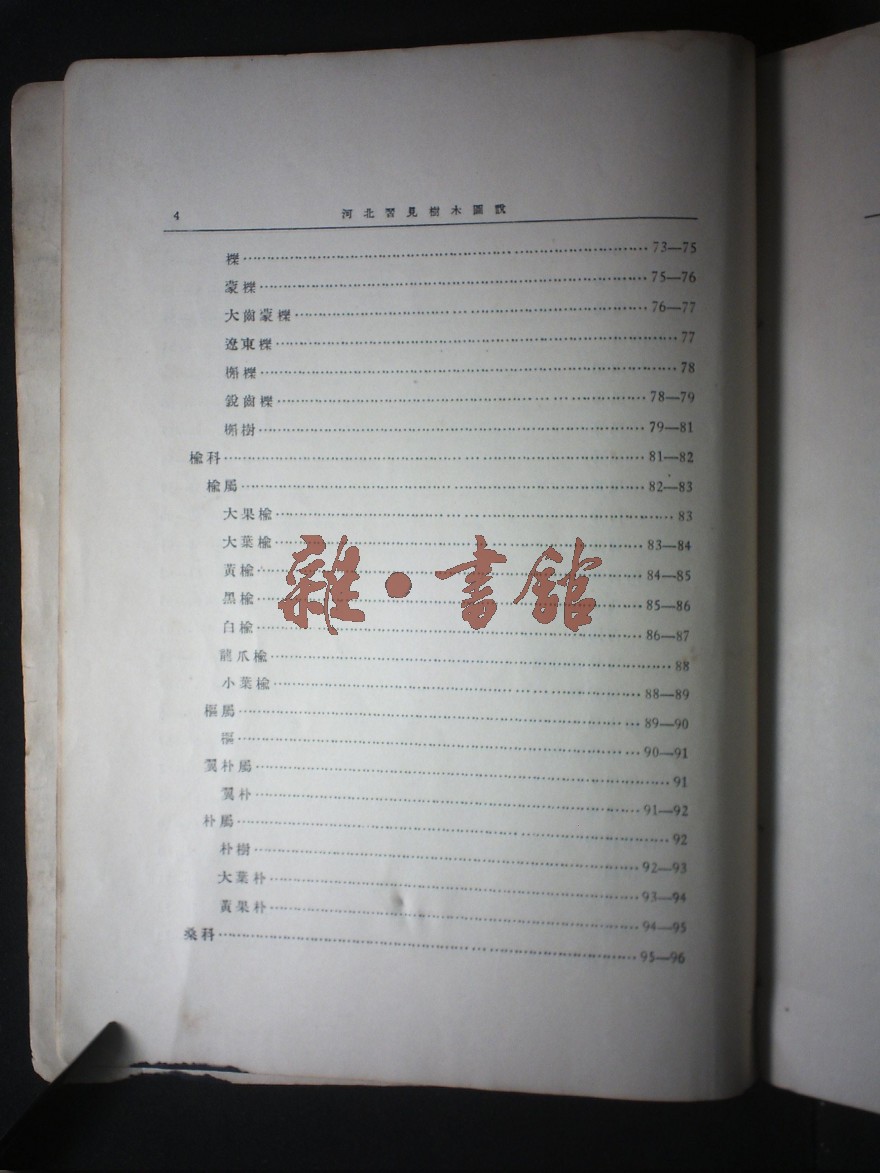 4 河北習見樹木圖說
櫟 73—75
蒙櫟 75—76
大齒蒙櫟 76—77
遼東櫟 77
槲櫟 78
銳齒櫟 78—79
槲樹 79—81
榆科 81—82
榆屬 82—83
大果榆 83
大葉榆 83—84
黃榆 84—85
黑榆 85—86
白榆 86—87
龍爪榆 88
小葉榆 88—89
樞屬 89—90
樞 90—91
翼朴屬 91
翼朴 91—92
朴屬 92
朴樹 92—93
大葉朴 93—94
黃果朴 94—95
桑科 95—96
雜·書館